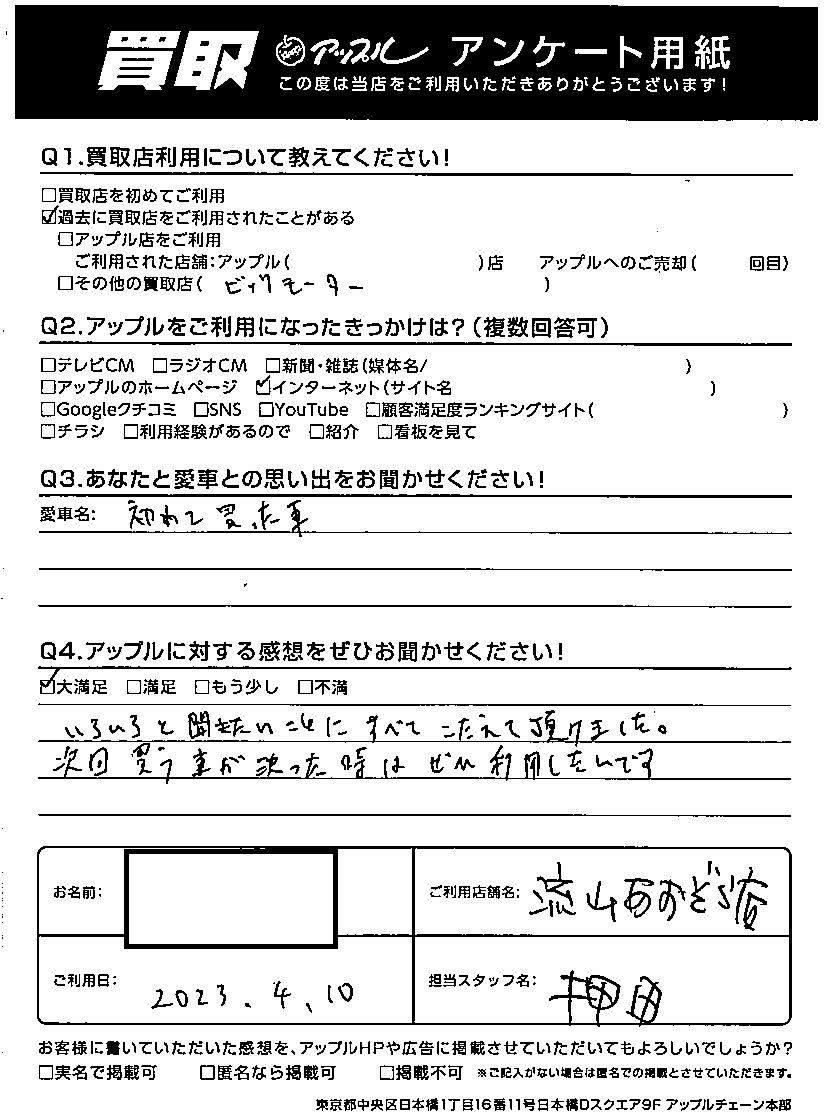 買取 アップル アンケート用紙
この度は当店をご利用いただきありがとうございます!
Q1.買取店利用について教えてください!
□買取店を初めてご利用
☑過去に買取店をご利用されたことがある
□アップル店をご利用
ご利用された店舗:アップル( )店 アップルへのご売却( 回目)
□その他の買取店( ビックモーター )
Q2.アップルをご利用になったきっかけは?(複数回答可)
□テレビCM □ラジオCM □新聞・雑誌(媒体名/ )
□アップルのホームページ ☑インターネット(サイト名 )
□Googleクチコミ □SNS □YouTube □顧客満足度ランキングサイト( )
□チラシ □利用経験があるので □紹介 □看板を見て
Q3.あなたと愛車との思い出をお聞かせください!
愛車名: 初めて買った車
Q4.アップルに対する感想をぜひお聞かせください!
☑大満足 □満足 □もう少し □不満
いろいろと聞きたいことにすべてこたえて頂けました。
次回買う車が決った時はぜひ利用したいです
お名前:
ご利用店舗名: 流山おおぞら店
ご利用日: 2023.4.10
担当スタッフ名: 押田
お客様に書いていただいた感想を、アップルHPや広告に掲載させていただいてもよろしいでしょうか?
□実名で掲載可 □匿名なら掲載可 □掲載不可 ※ご記入がない場合は匿名での掲載とさせていただきます。
東京都中央区日本橋1丁目16番11号日本橋Dスクエア9F アップルチェーン本部